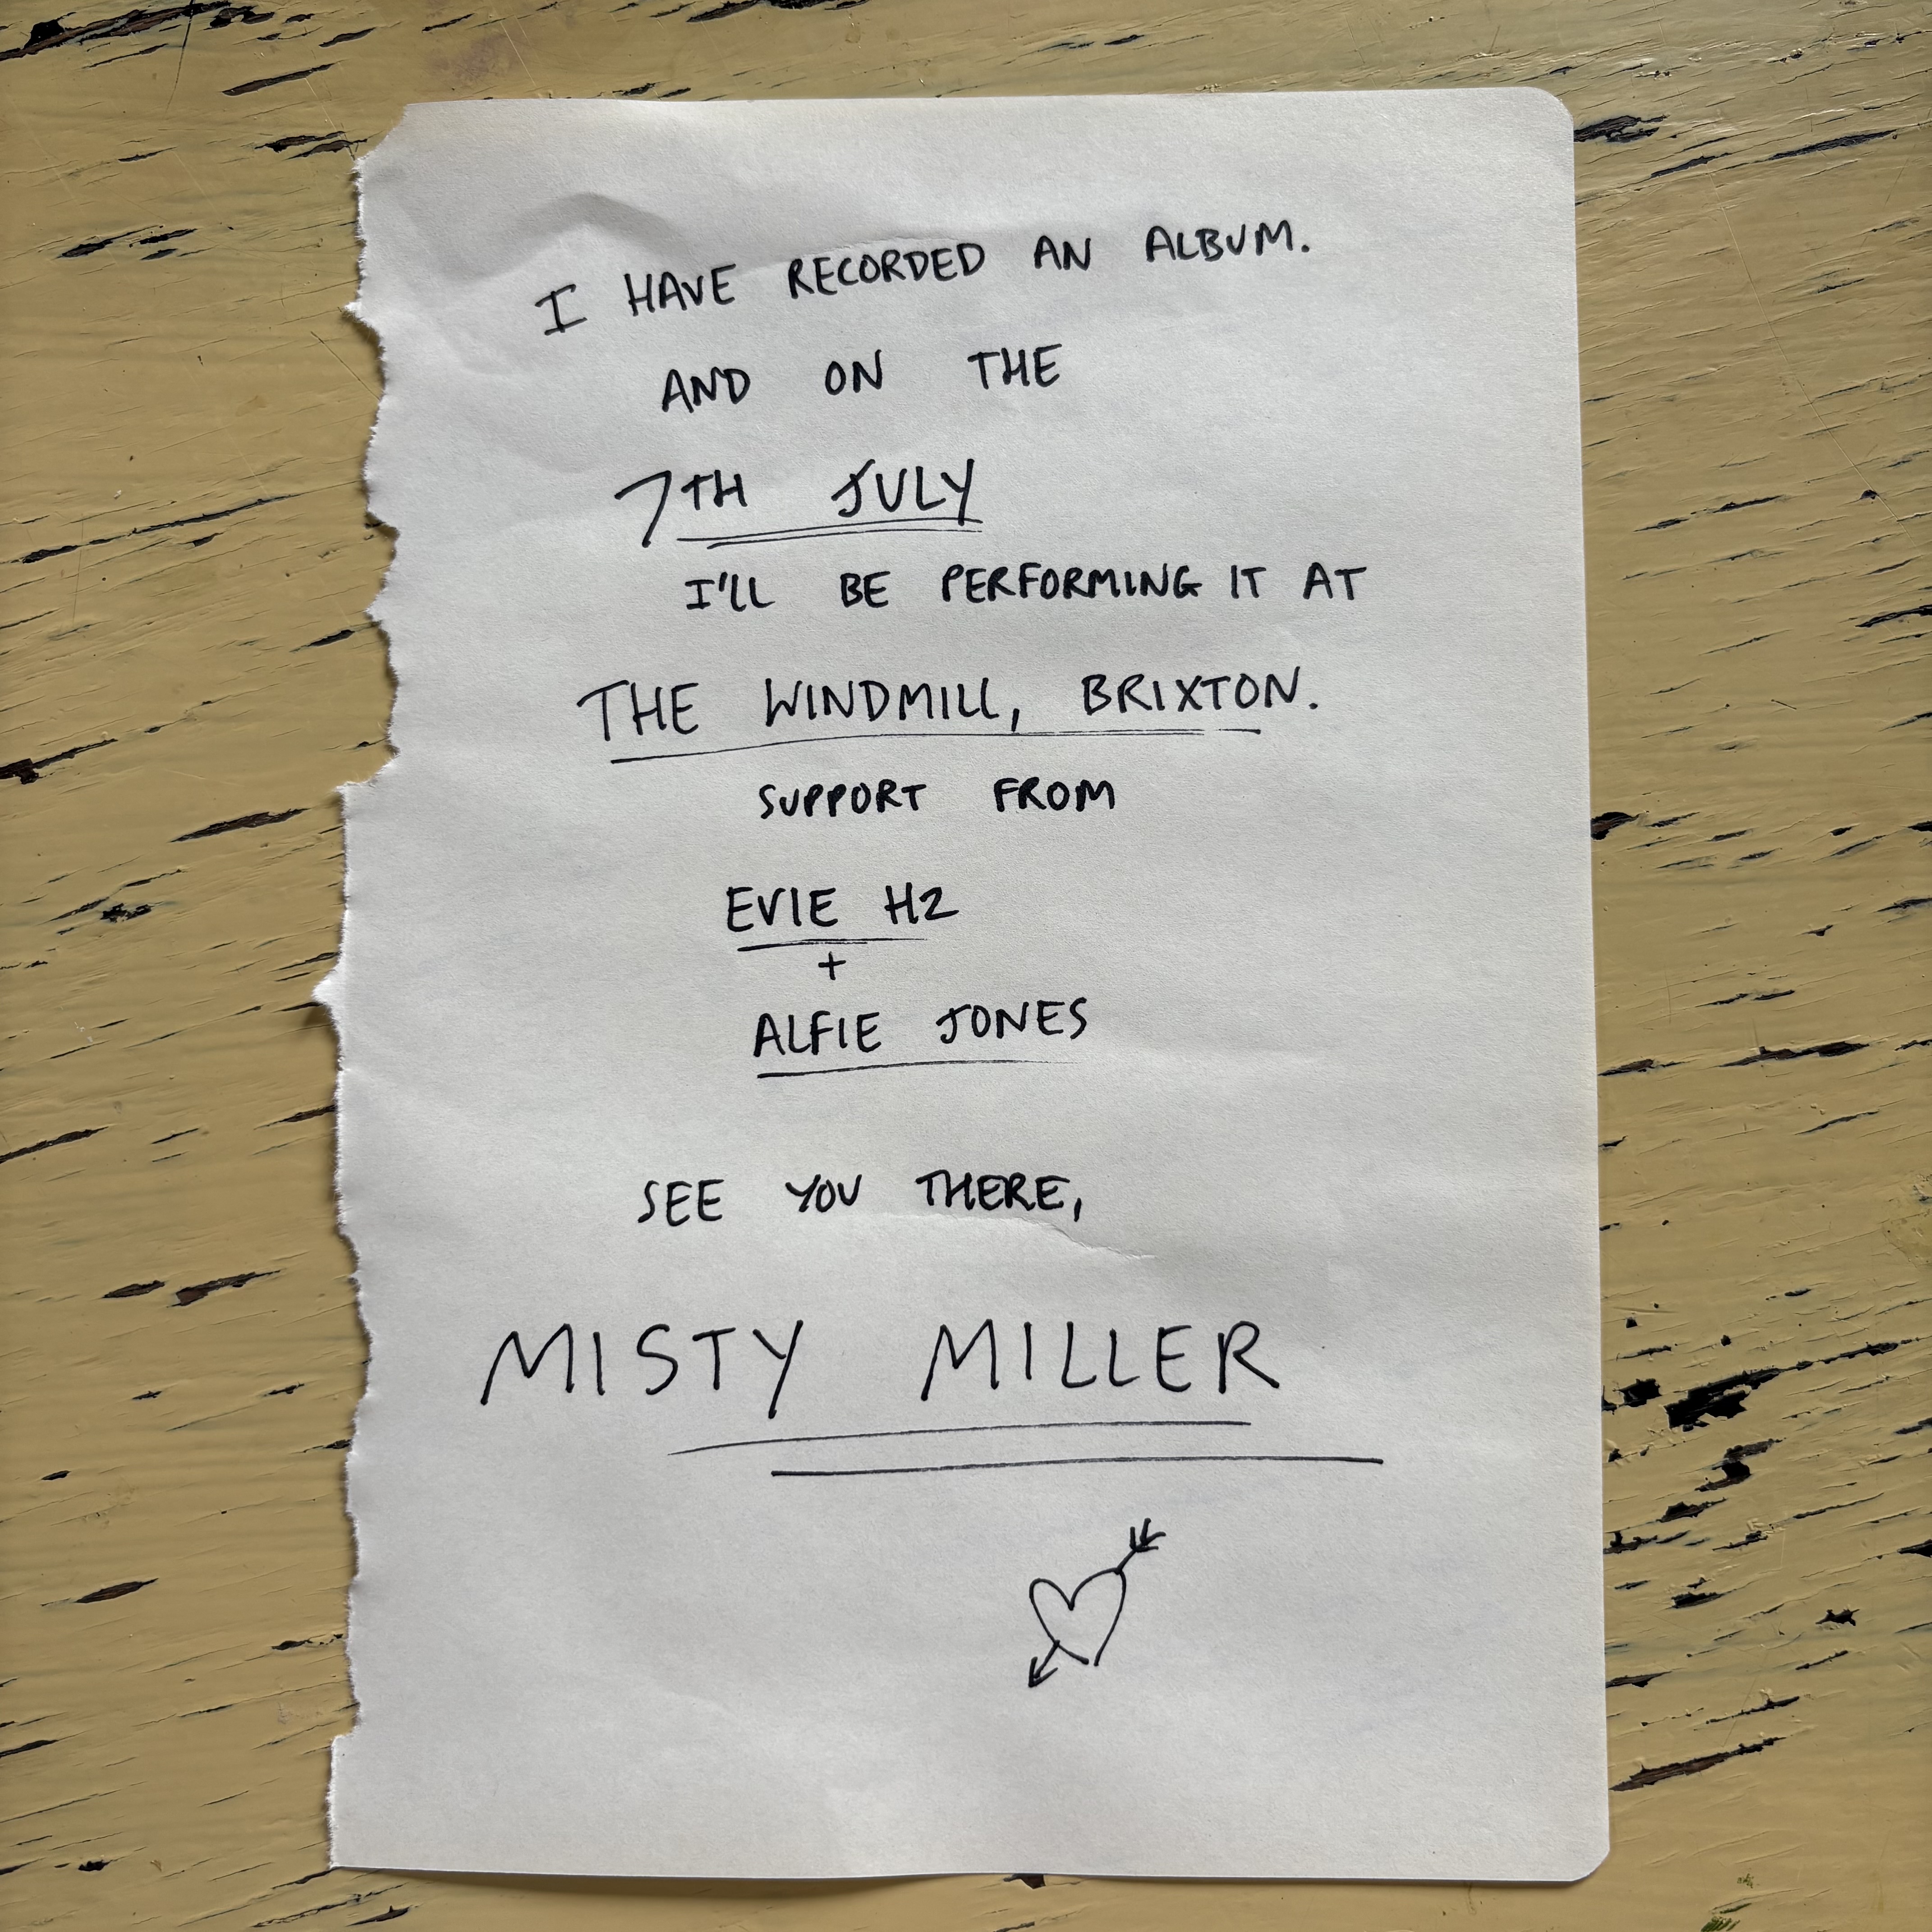 I HAVE RECORDED AN ALBUM.
AND ON THE
7TH JULY
I'LL BE PERFORMING IT AT
THE WINDMILL, BRIXTON.
SUPPORT FROM
EVIE H2
+
ALFIE JONES
SEE YOU THERE,
MISTY MILLER